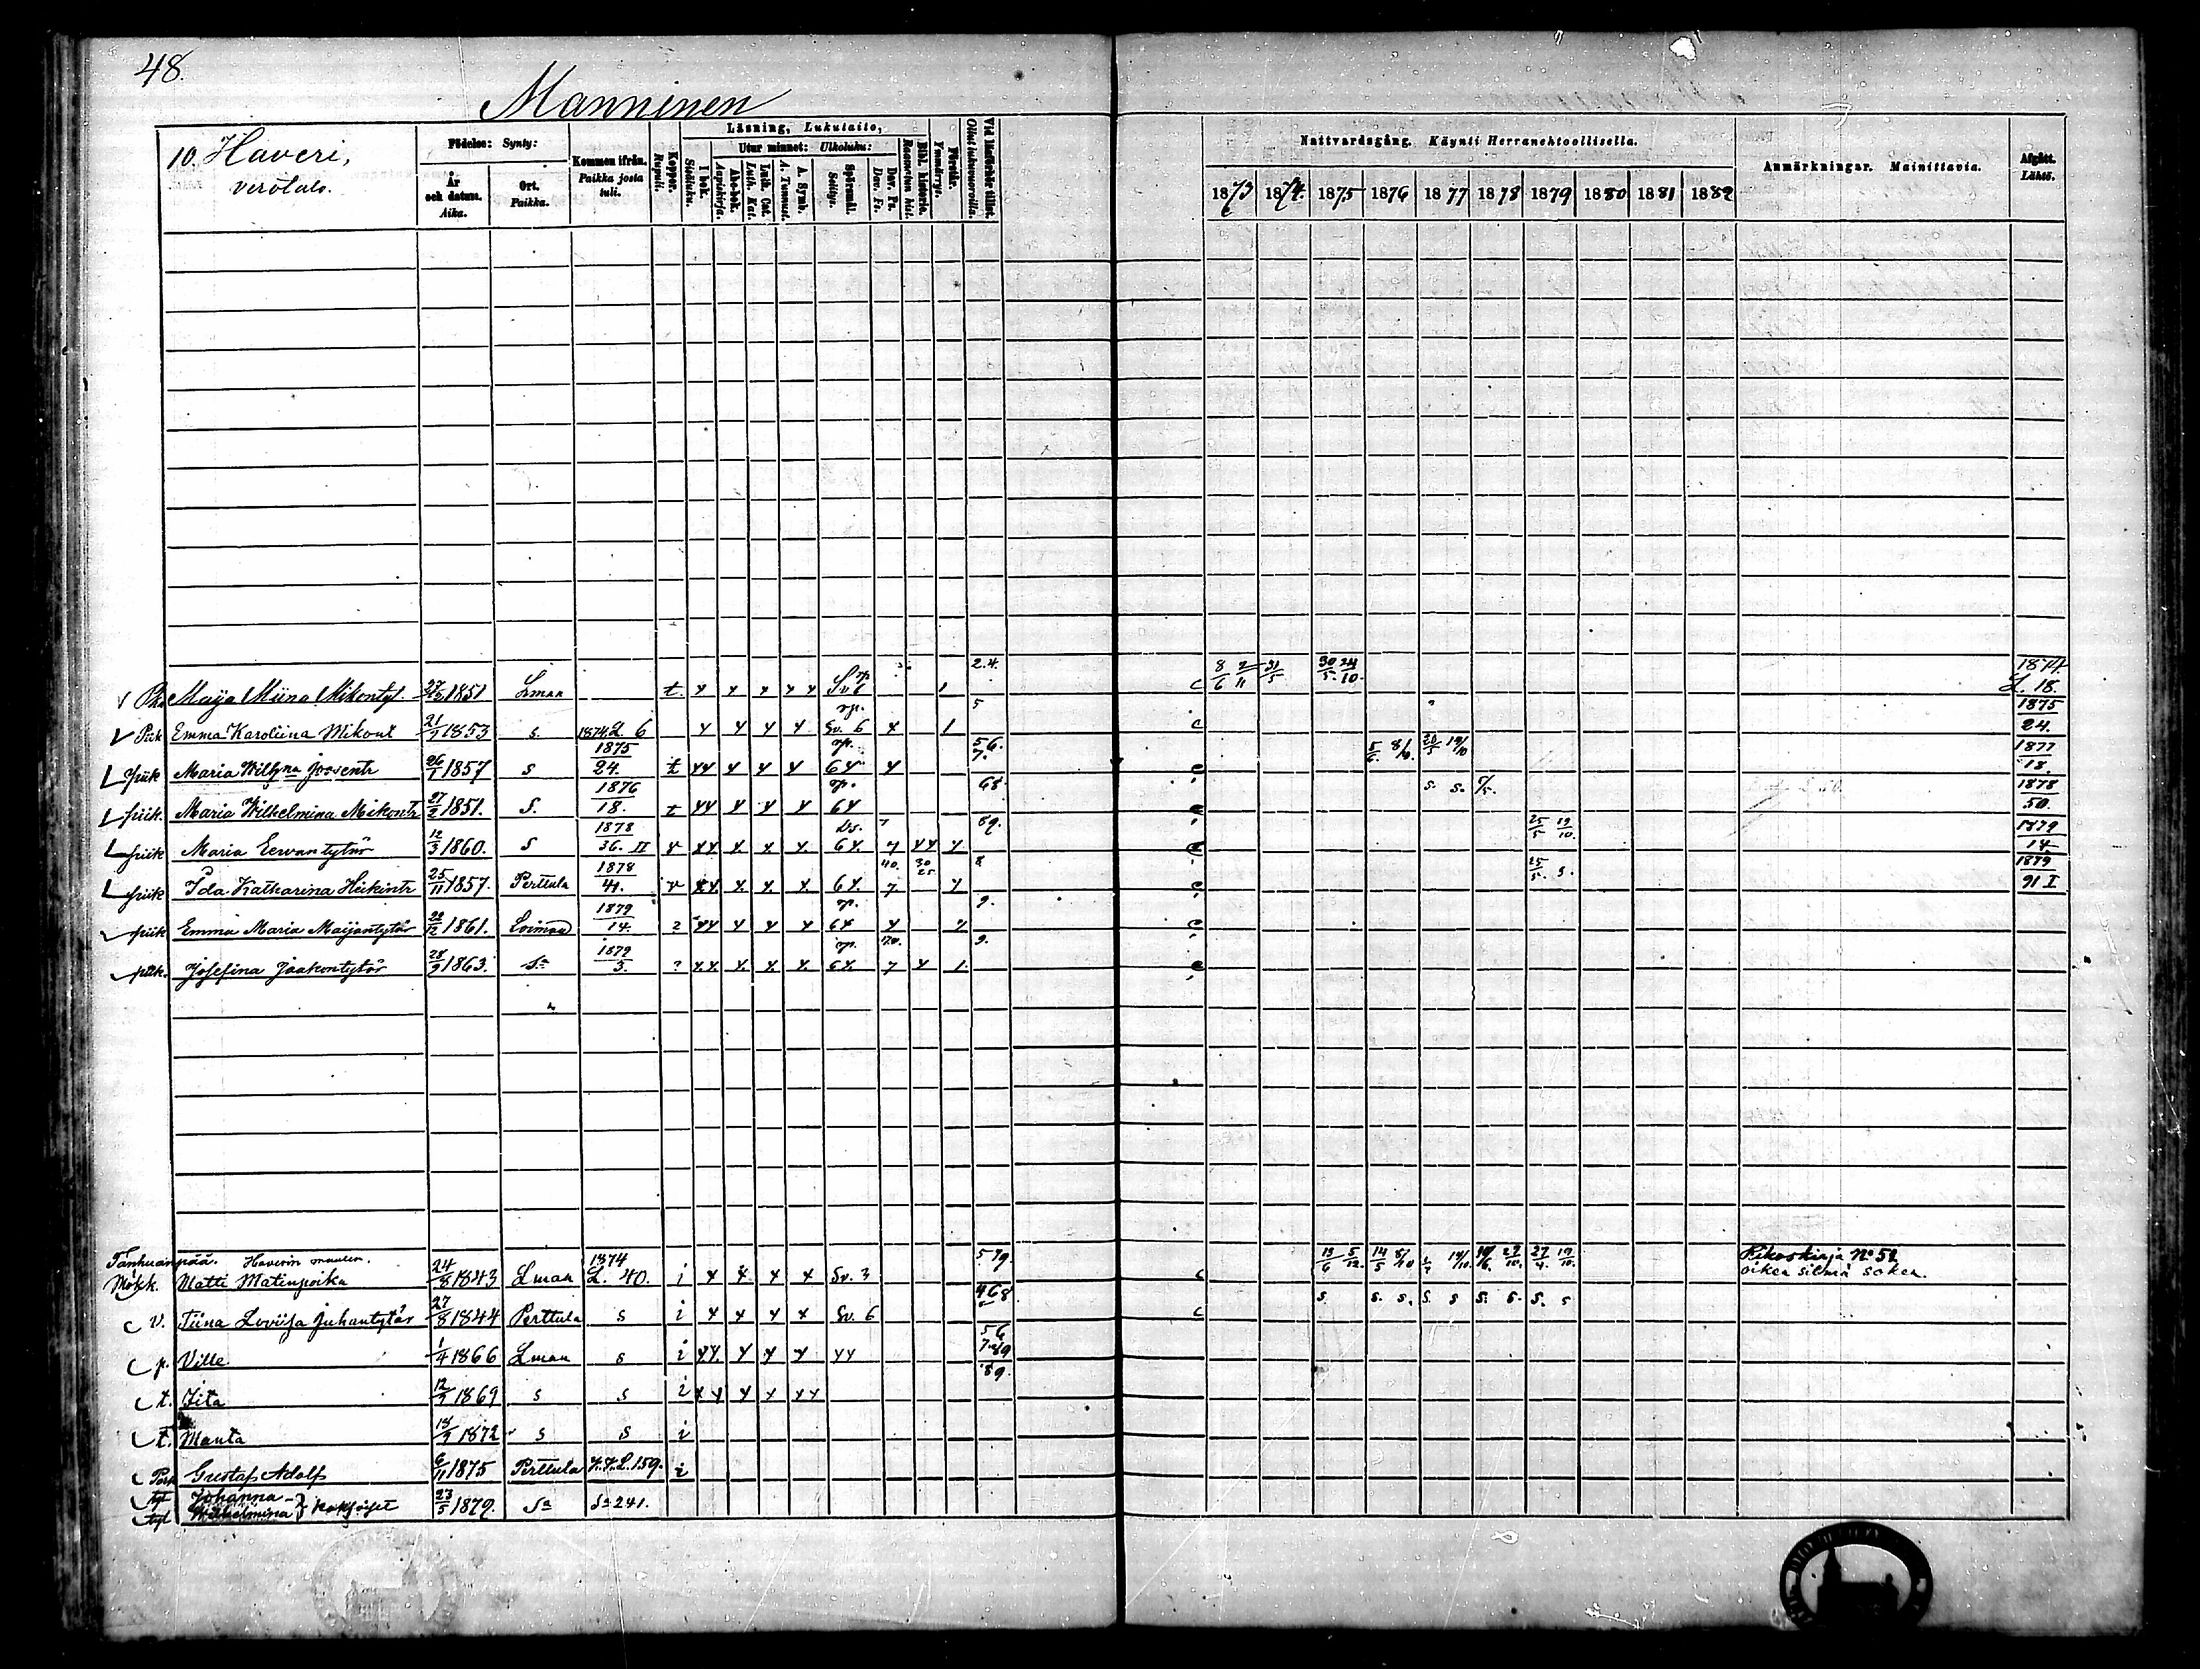 48.
Manninen
10. Haveri,
verotalo.
Födelse: Synty:
År och datum. Aika.
Ort. Paikka.
Kommen ifrån. Paikka josta tuli.
Koppor. Rupuli.
Läsning, Lukutaito,
I bok. Sisäluku.
Utur minnet: Ulkoluku:
Abc-bok. Aapiskirja.
Luth. Cat. Luth. Kat.
A. Symb. A. Tunnust.
Spörsmål. Selitys.
Dav. Ps. Dav. Ps.
Bibl. historie. Raamatun hist.
Förstår. Ymmärrys.
Vid läsförhör tillst. Ollut lukuvuorolla.
Nattvardsgång. Käynti Herranehtoollisella.
1873 1874. 1875 1876 1877 1878 1879 1880 1881 1882
Anmärkningar. Mainittavia.
Afgått. Lähtö.
Maija Miina Mikontyt. 1851 Lman t. Sv 6 2.4. 8/6 2/11 31/5 30/5 24/10. 1874 L. 18.
Piik Emma Karoliina Mikont 21/9 1853 s. 1874 L. 6 Sv. 6 5 1875 24.
piik Maria Wilhna Joosentr 26/1 1857 s 1875 24. t 64 5 6. 7. 5/6. 8/10. 20/5 14/10 1877 18.
piik. Maria Wilhelmina Mikontr 27/2 1851. S. 1876 18. t 64 68. s. s. 1878 50.
piik Maria Eervantytär 12/3 1860. s 1878 36. II v 64. 89. 25/5 19/10. 1879 14
piik Ida Katharina Heikintr 25/11 1857. Perttula 1878 41. v 64. 40. 30 25. 8 25/5. s. 1879 91 I
piik Emma Maria Maijantytär 22/12 1861. Loimaa 1879 14. ? 64 9.
piik. Josefina Jaakontytär 28/9 1863. Sa 1879 3. ? 64. 9.
Tanhuanpää. Haverin maalla.
Mökk. Matti Matinpoika 24/8 1843 Lman 1874 L. 40. i Sv. 3 5 79. 19/6 5/12. 14/5 8/10 14/10. 27/10. 27/4. 19/10. Rikoskirja No 58
oikea silmä sokea.
v. Tiina Loviisa Juhantytär 27/8 1844 Perttula s i Sv. 6 468 s. s. s. s s s. s. s. s
p. Ville 1/4 1866 Lman s i 56 7.89
t. Iita 12/9 1869 s s i 89.
t. Manta 18/9 1872 s s i
Poik Gustaf Adolf 6/11 1875 Perttula K.K.L.159. i
tyt Johanna
tyt Wilhelmina } kaksoiset 23/5 1879. Sa Sa 241.